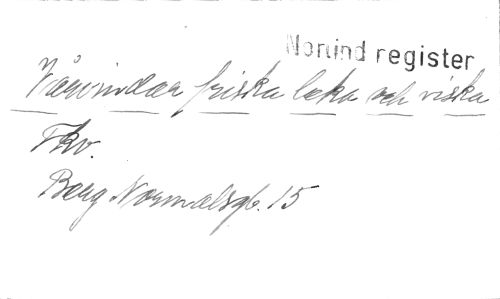 Norlind register
Vårvindar friska leka och viska
Fkv.
Berg Normalsgb. 15